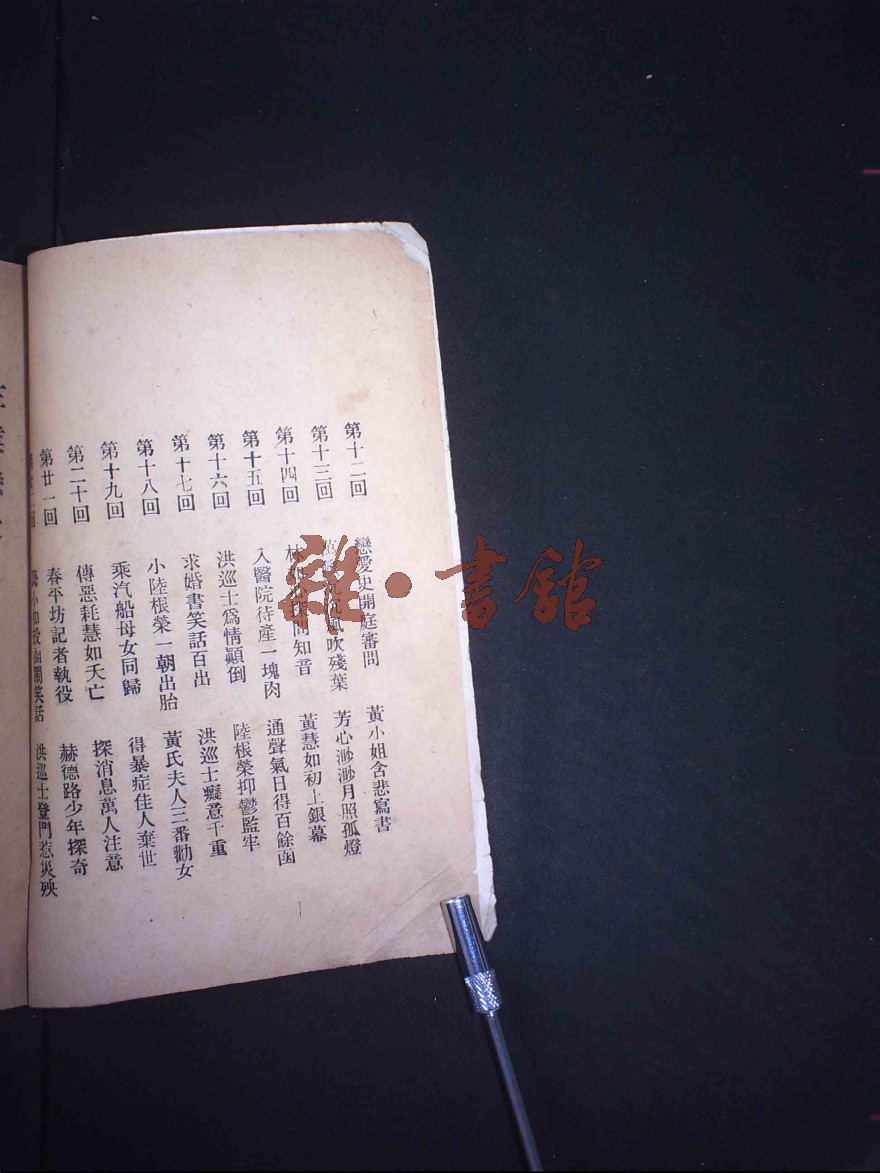 第十二回 戀愛史開庭審問 黃小姐含悲寫書
第十三回 沉沉風吹殘葉 芳心渺渺月照孤燈
第十四回 林 問知音 黃慧如初上銀幕
第十五回 入醫院待產一塊肉 通聲氣日得百餘函
第十六回 洪巡士爲情顚倒 陸根榮抑鬱監牢
第十七回 求婚書笑話百出 洪巡士癡意千重
第十八回 小陸根榮一朝出胎 黃氏夫人三番勸女
第十九回 乘汽船母女同歸 得暴症佳人棄世
第二十回 傳惡耗慧如夭亡 探消息萬人注意
第廿一回 春平坊記者執役 赫德路少年探奇
笑話 洪巡士登門惹災殃
雜·書館